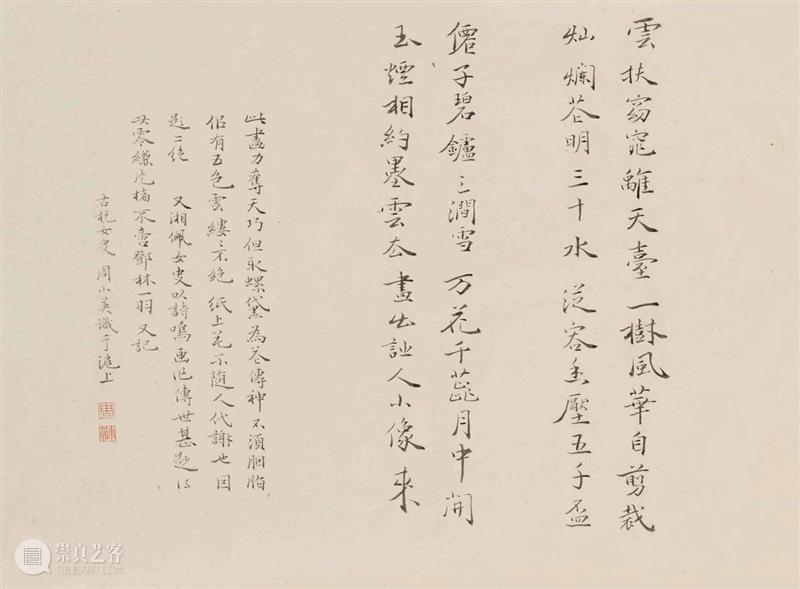 雲扶窈窕離天臺一樹風華自剪裁
灿爛花明三十水從容香壓五千盃
僊子碧鑪三澗雪万花千蕋月中開
玉煙相約墨雲去畫出詩人小像來
此畫力奪天巧但取螺黛為花傳神不須胭脂
侶有五色雲縷ミ不絕紙上花不隨人代謝也因
題二絕 又湘佩女史以詩鳴画作傳世甚尟得
此零縑片楮不啻鄧林一羽 又記
古杭女史周小英識于滬上
崇真艺客
TRUEART.COM